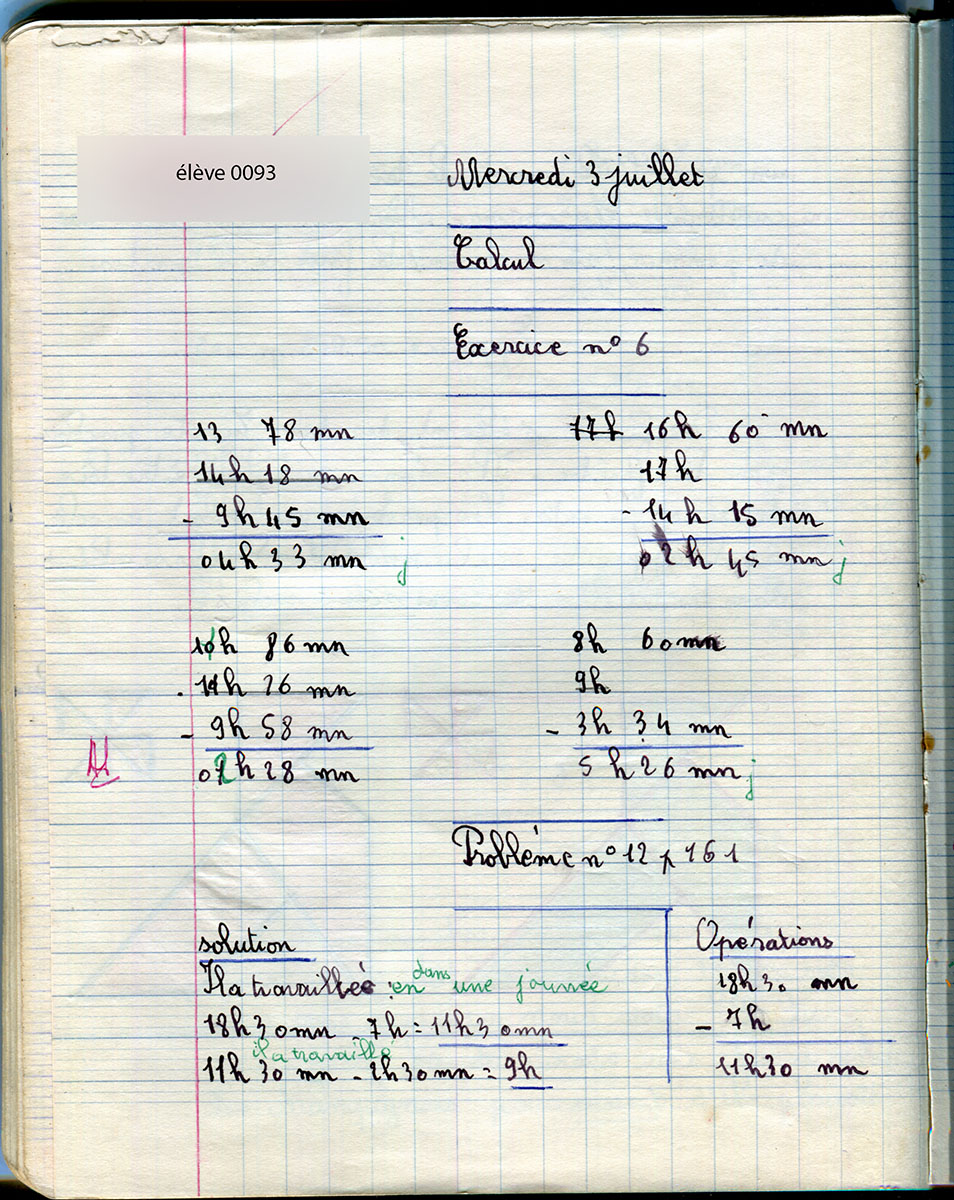 élève 0093
Mercredi 3 juillet
Calcul
Exercice n° 6
13 78 mn
14h 18 mn
- 9h 45 mn
04h 33 mn j
17h 16h 60 mn
17h
- 14h 15 mn
02h 45 mn j
11h 86 mn
12h 26 mn
- 9h 58 mn
02h 28 mn
8h 60 mn
9h
- 3h 34 mn
5h 26 mn j
Problème n° 12 p 161
solution
Il a travaillé : en dans une journée
18h30mn - 7h = 11h30mn
il a travaillé
11h 30 mn - 2h30mn = 9h
Opérations
18h30 mn
- 7h
11h30 mn